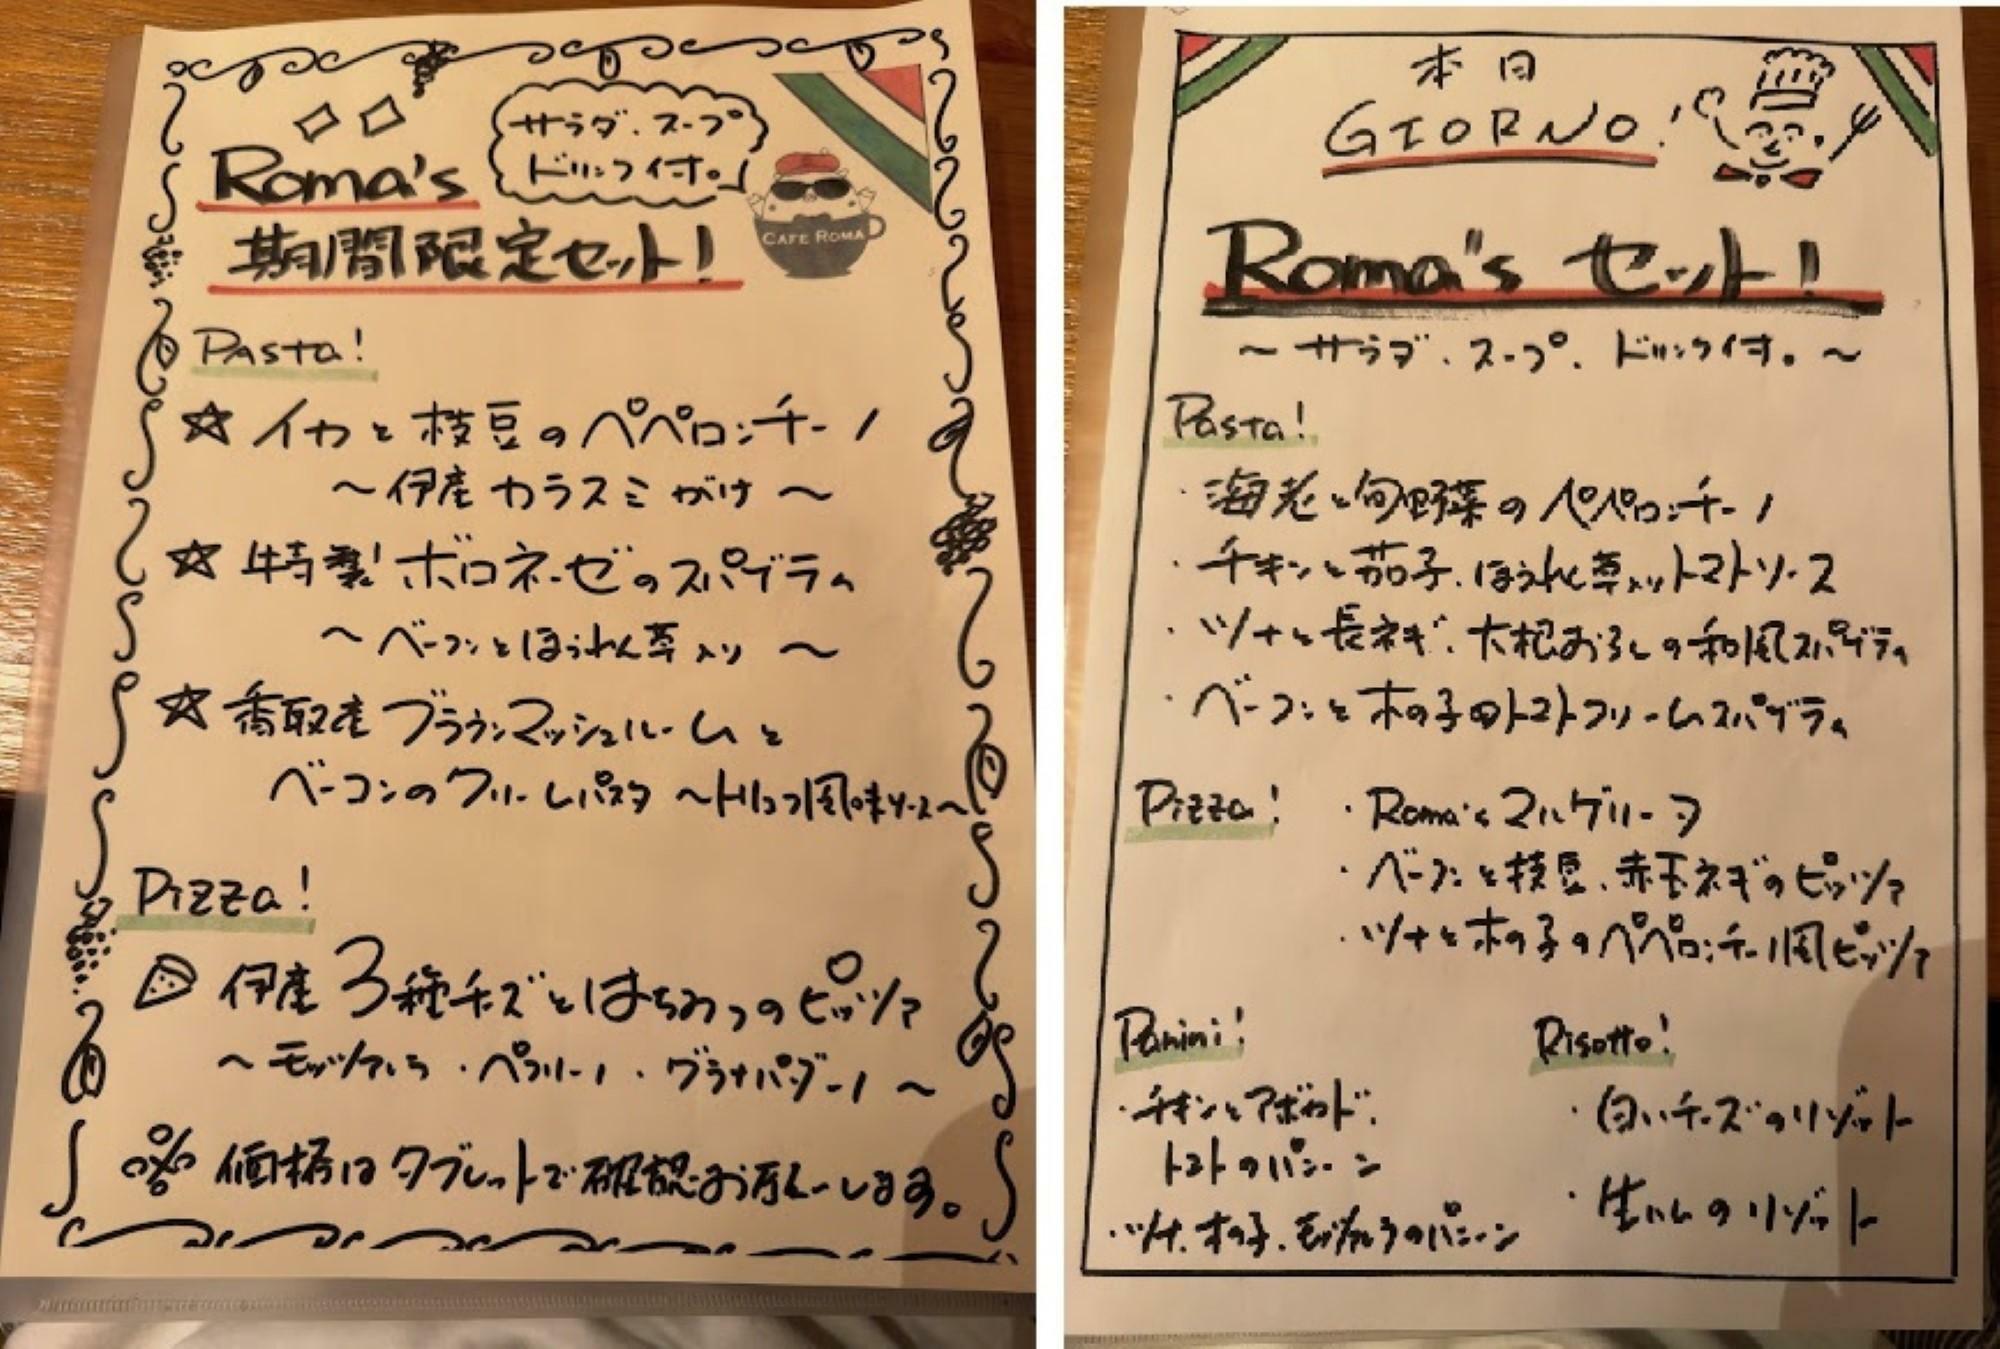 Roma's
サラダ、スープ
ドリンク付。
期間限定セット!
CAFE ROMA
Pasta!
☆ イカと枝豆のペペロンチーノ
〜伊産カラスミがけ〜
☆ 特製!ボロネーゼのスパゲティ
〜ベーコンとほうれん草入り〜
☆ 香取産ブラウンマッシュルームと
ベーコンのクリームパスタ 〜トリュフ風味ソース〜
Pizza!
伊産3種チーズとはちみつのピッツァ
〜モッツァレラ・ペコリーノ・グラナパダーノ〜
※ 価格はタブレットで確認お願いします。
本日
GIORNO!
Roma's セット!
〜サラダ、スープ、ドリンク付。〜
Pasta!
・海老と旬野菜のペペロンチーノ
・チキンと茄子、ほうれん草入りトマトソース
・ツナと長ネギ、大根おろしの和風スパゲティ
・ベーコンと木の子のトマトクリームスパゲティ
Pizza!
・Roma's マルゲリータ
・ベーコンと枝豆、赤玉ネギのピッツァ
・ツナと木の子のペペロンチーノ風ピッツァ
Panini!
・チキンとアボカド、
トマトのパニーニ
・ツナ、木の子、モッツァレラのパニーニ
Risotto!
・白いチーズのリゾット
・生ハムのリゾット